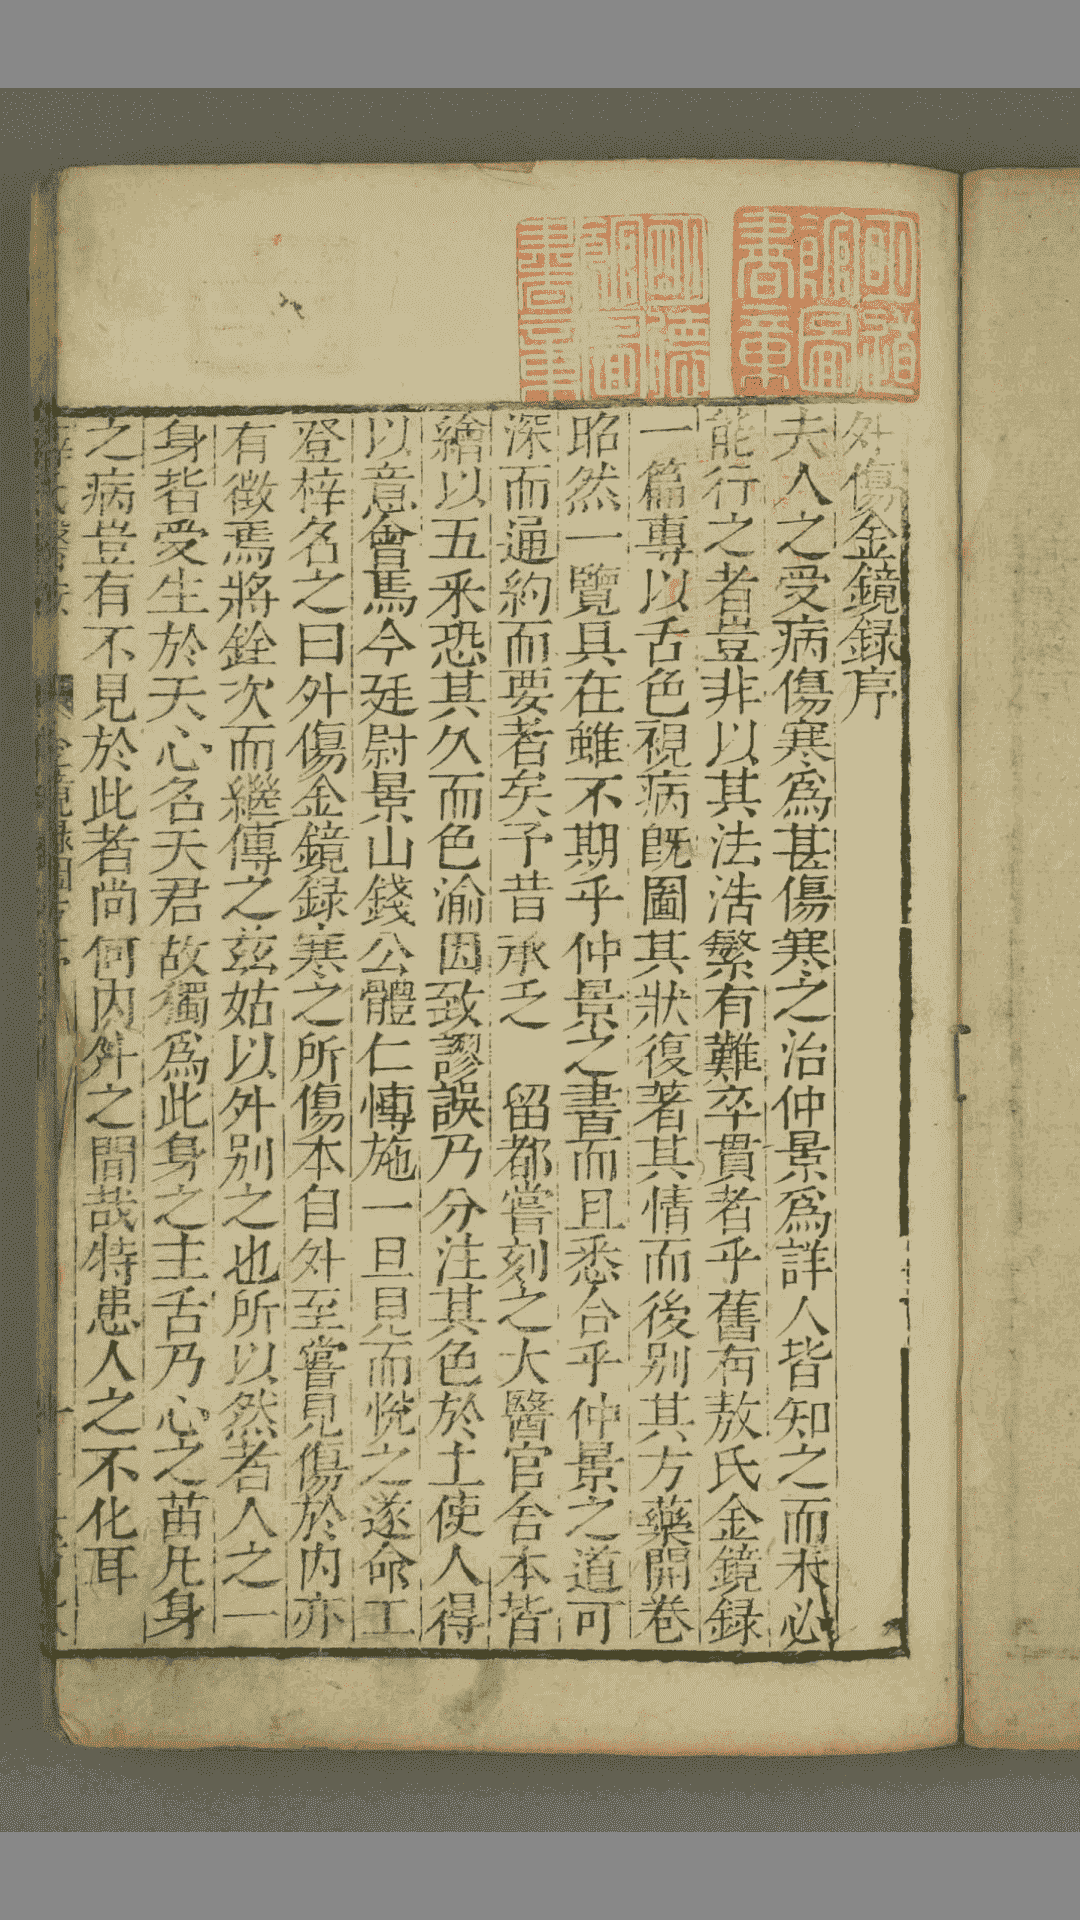 外傷金鏡録序
夫人之受病傷寒爲甚傷寒之治仲景爲詳人皆知之而未必
能行之者豈非以其法浩繁有難卒貫者乎舊有敖氏金鏡録
一篇專以舌色視病既圖其狀復著其情而後别其方藥開卷
昭然一覽具在雖不期乎仲景之書而且悉合乎仲景之道可
深而通約而要者矣予昔承乏 留都嘗刻之大醫官舍本皆
繪以五釆恐其久而色渝因致謬誤乃分注其色於土使人得
以意會焉今廷尉景山錢公體仁博施一旦見而悅之遂命工
登梓名之曰外傷金鏡録寒之所傷本自外至嘗見傷於内亦
有徵焉將銓次而繼傳之兹姑以外别之也所以然者人之一
身皆受生於天心名天君故獨爲此身之主舌乃心之苗凡身
之病豈有不見於此者尚何内外之間哉特患人之不化耳
明道館圖書章
明德館圖書章